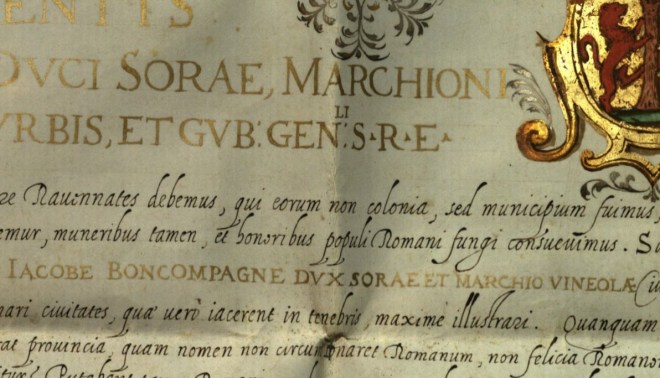 ENTIS
DVCI SORAE, MARCHIONI
VRBIS, ET GVB: GEN:LI S·R·E·
Rauennates debemus, qui eorum non colonia, sed municipium fuimus,
emur, muneribus tamen, et honoribus populi Romani fungi consueuimus.
IACOBE BONCOMPAGNE DVX SORAE ET MARCHIO VINEOLÆ
nari ciuitates, quæ uero iacerent in tenebris, maxime illustrari. Quanquam
prouincia, quam nomen non circumsonaret Romanum, non felicia Romano